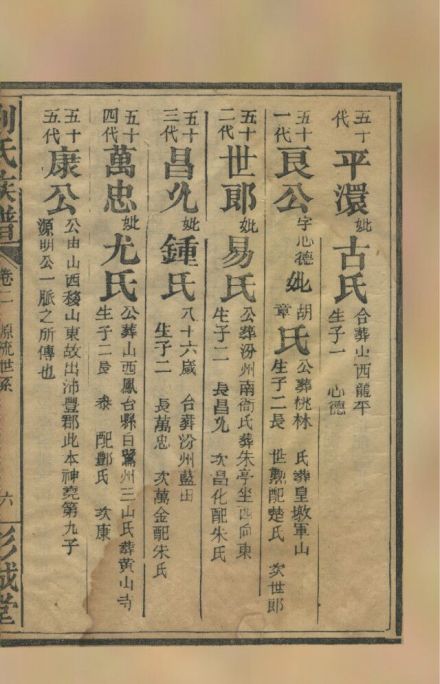 五十代 平澴 妣古氏 合葬山西龍平 生子一 心德
五十一代 良公 字心德 妣胡章氏 公葬桃林 氏葬皇墩軍山 生子二 長世勲配楚氏 次世郎
五十二代 世郎 妣易氏 公葬汾州南衙 氏葬朱亭坐西向東 生子二 長昌允 次昌化配朱氏
五十三代 昌允 妣鍾氏 八十六歲 合葬汾州藍田 生子二 長萬忠 次萬金配朱氏
五十四代 萬忠 妣尤氏 公葬山西鳳台縣白鷺州三山 氏葬黄山寺 生子二 長泰 配酆氏 次康
五十五代 康公 公由山西移山東故出沛豐郡此本神堯第九子
源明公一脈之所傳也
劉氏族譜 卷二 源流世系 六 彭城堂